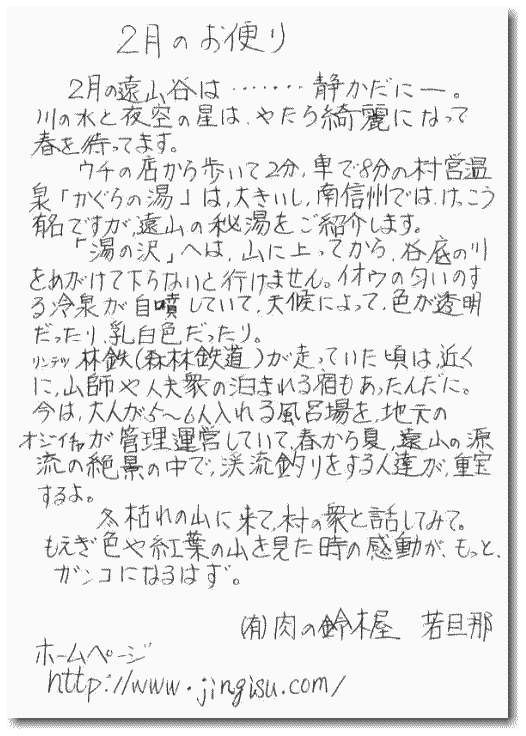 2月のお便り
2月の遠山谷は‥‥‥‥静かだにー。
川の水と夜空の星は、やたら綺麗になって
春を待ってます。
ウチの店から歩いて2分、車で8分の村営温
泉「かぐらの湯」は、大きいし、南信州では、けっこう
有名ですが、遠山の秘湯をご紹介します。
「湯の沢」へは、山に上ってから、谷底の川
をめがけて下らないと行けません。イオウの匂いのす
る冷泉が自噴していて、天候によって、色が透明
だったり、乳白色だったり。
リンテツ 林鉄(森林鉄道)が走っていた頃は、近く
に、山師や人夫衆の泊まれる宿もあったんだに。
今は、大人が5〜6人入れる風呂場を、地元の
オジイチャンが管理運営していて、春から夏、遠山の源
流の絶景の中で、渓流釣りをする人達が、重宝
するよ。
冬枯れの山に来て、村の衆と話してみて。
もえぎ色や紅葉の山を見た時の感動が、もっと、
ガンコになるはず。
(有)肉の鈴木屋 若旦那
ホームページ
http://www.jingisu.com/